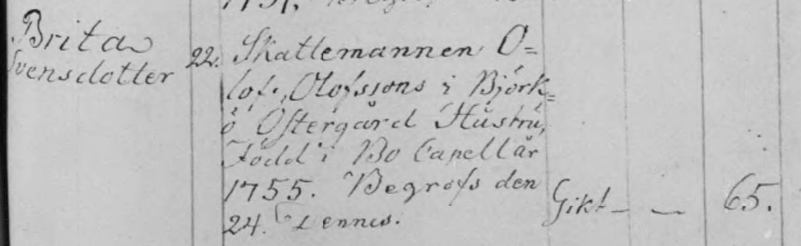 1751,
Brita
Svensdotter
22. Skattemannen O=
lof Olofssons i Björk=
ö Östergård Hustru,
Född i Bo Capell år
1755. Begrofs den
24. Dennes.
Gikt — — 65.